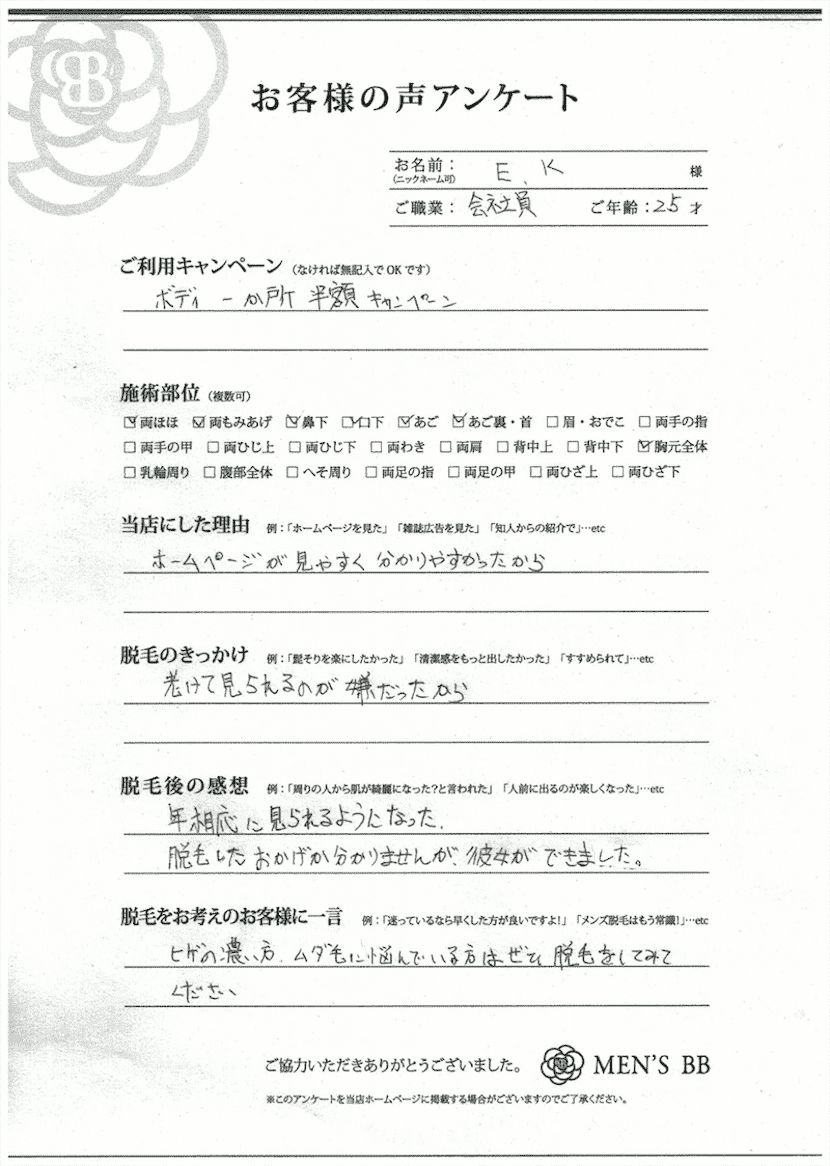 お客様の声アンケート
お名前： E.K 様
(ニックネーム可)
ご職業： 会社員 ご年齢：25 才
ご利用キャンペーン（なければ無記入でOKです）
ボディ 一か所 半額 キャンペーン
施術部位（複数可）
☑両ほほ ☑両もみあげ ☑鼻下 ☑口下 ☑あご ☑あご裏・首 □眉・おでこ □両手の指
□両手の甲 □両ひじ上 □両ひじ下 □両わき □両肩 □背中上 □背中下 ☑胸元全体
□乳輪周り □腹部全体 □へそ周り □両足の指 □両足の甲 □両ひざ上 □両ひざ下
当店にした理由 例：「ホームページを見た」「雑誌広告を見た」「知人からの紹介で」…etc
ホームページが見やすく分かりやすかったから
脱毛のきっかけ 例：「髭そりを楽にしたかった」「清潔感をもっと出したかった」「すすめられて」…etc
老けて見られるのが嫌だったから
脱毛後の感想 例：「周りの人から肌が綺麗になった？と言われた」「人前に出るのが楽しくなった」…etc
年相応に見られるようになった.
脱毛したおかげか分かりませんが、彼女ができました。
脱毛をお考えのお客様に一言 例：「迷っているなら早くした方が良いですよ！」「メンズ脱毛はもう常識！」…etc
ヒゲの濃い方、ムダ毛に悩んでいる方はぜひ脱毛をしてみて
ください
ご協力いただきありがとうございました。 MEN'S BB
※このアンケートを当店ホームページに掲載する場合がございますのでご了承ください。